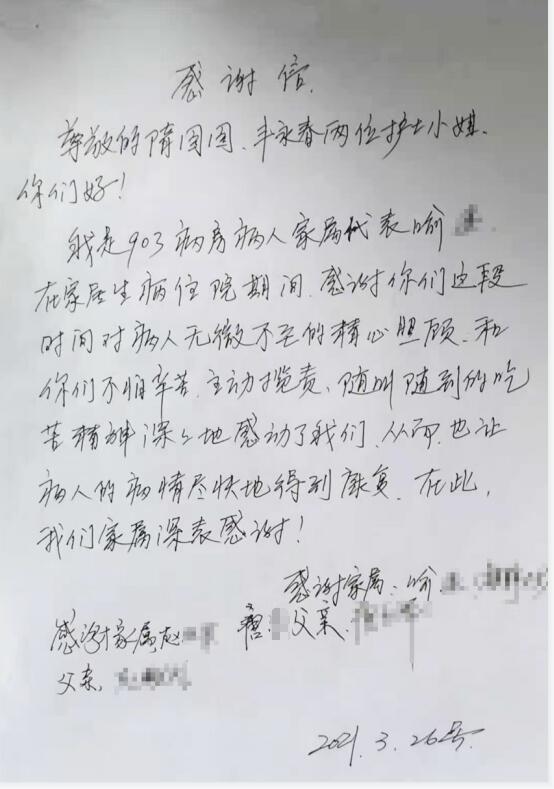 感谢信
尊敬的隋囡囡、丰永春两位护士小姐.
你们好！
我是903病房病人家属代表喻
在家属生病住院期间.感谢你们这段
时间对病人无微不至的精心照顾.和
你们不怕辛苦.主动揽责、随叫随到的吃
苦精神深々地感动了我们.从而也让
病人的病情尽快地得到康复.在此,
我们家属深表感谢！
感谢家属:喻
感谢家属赵
父亲.
2021.3.26号.